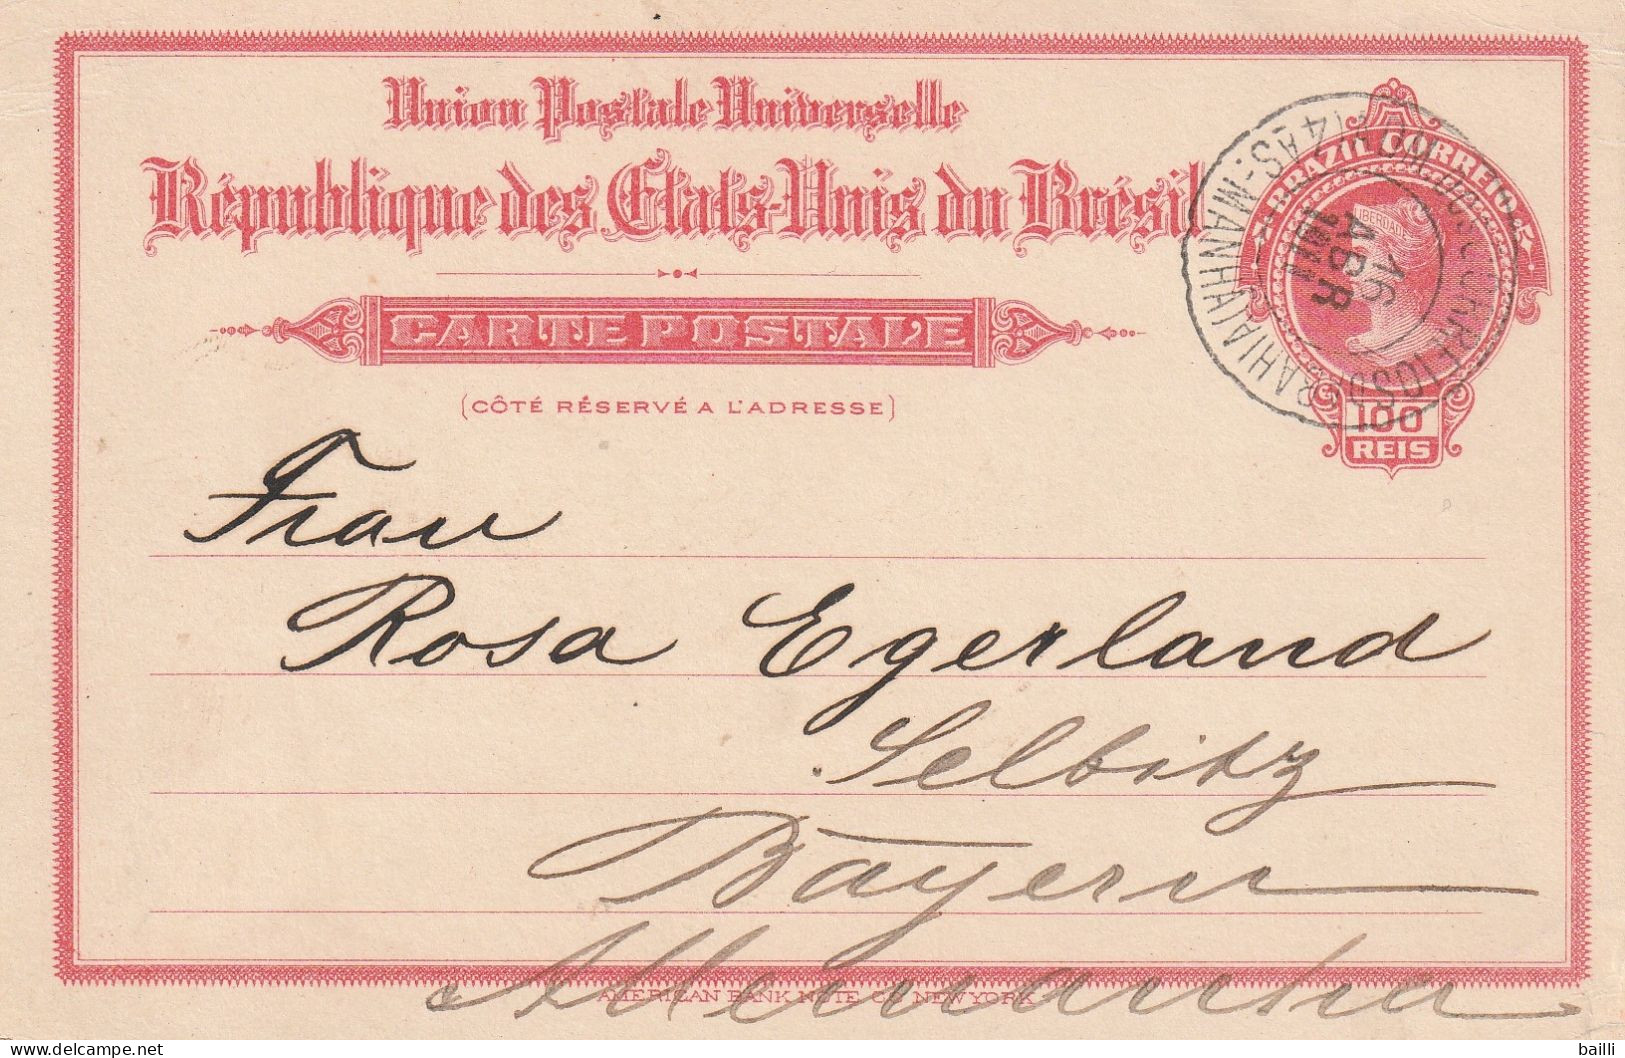 Union Postale Universelle
République des États-Unis du Brésil
CARTE POSTALE
(CÔTÉ RÉSERVÉ A L'ADRESSE)
BRAZIL CORREIO
LIBERDADE
100
REIS
16
ABR
1911
AS.-MANHÃ
BAHIA
Frau
Rosa Egerland
Selbitz
Bayern
Allemanha
AMERICAN BANK NOTE CO NEW YORK
bailli